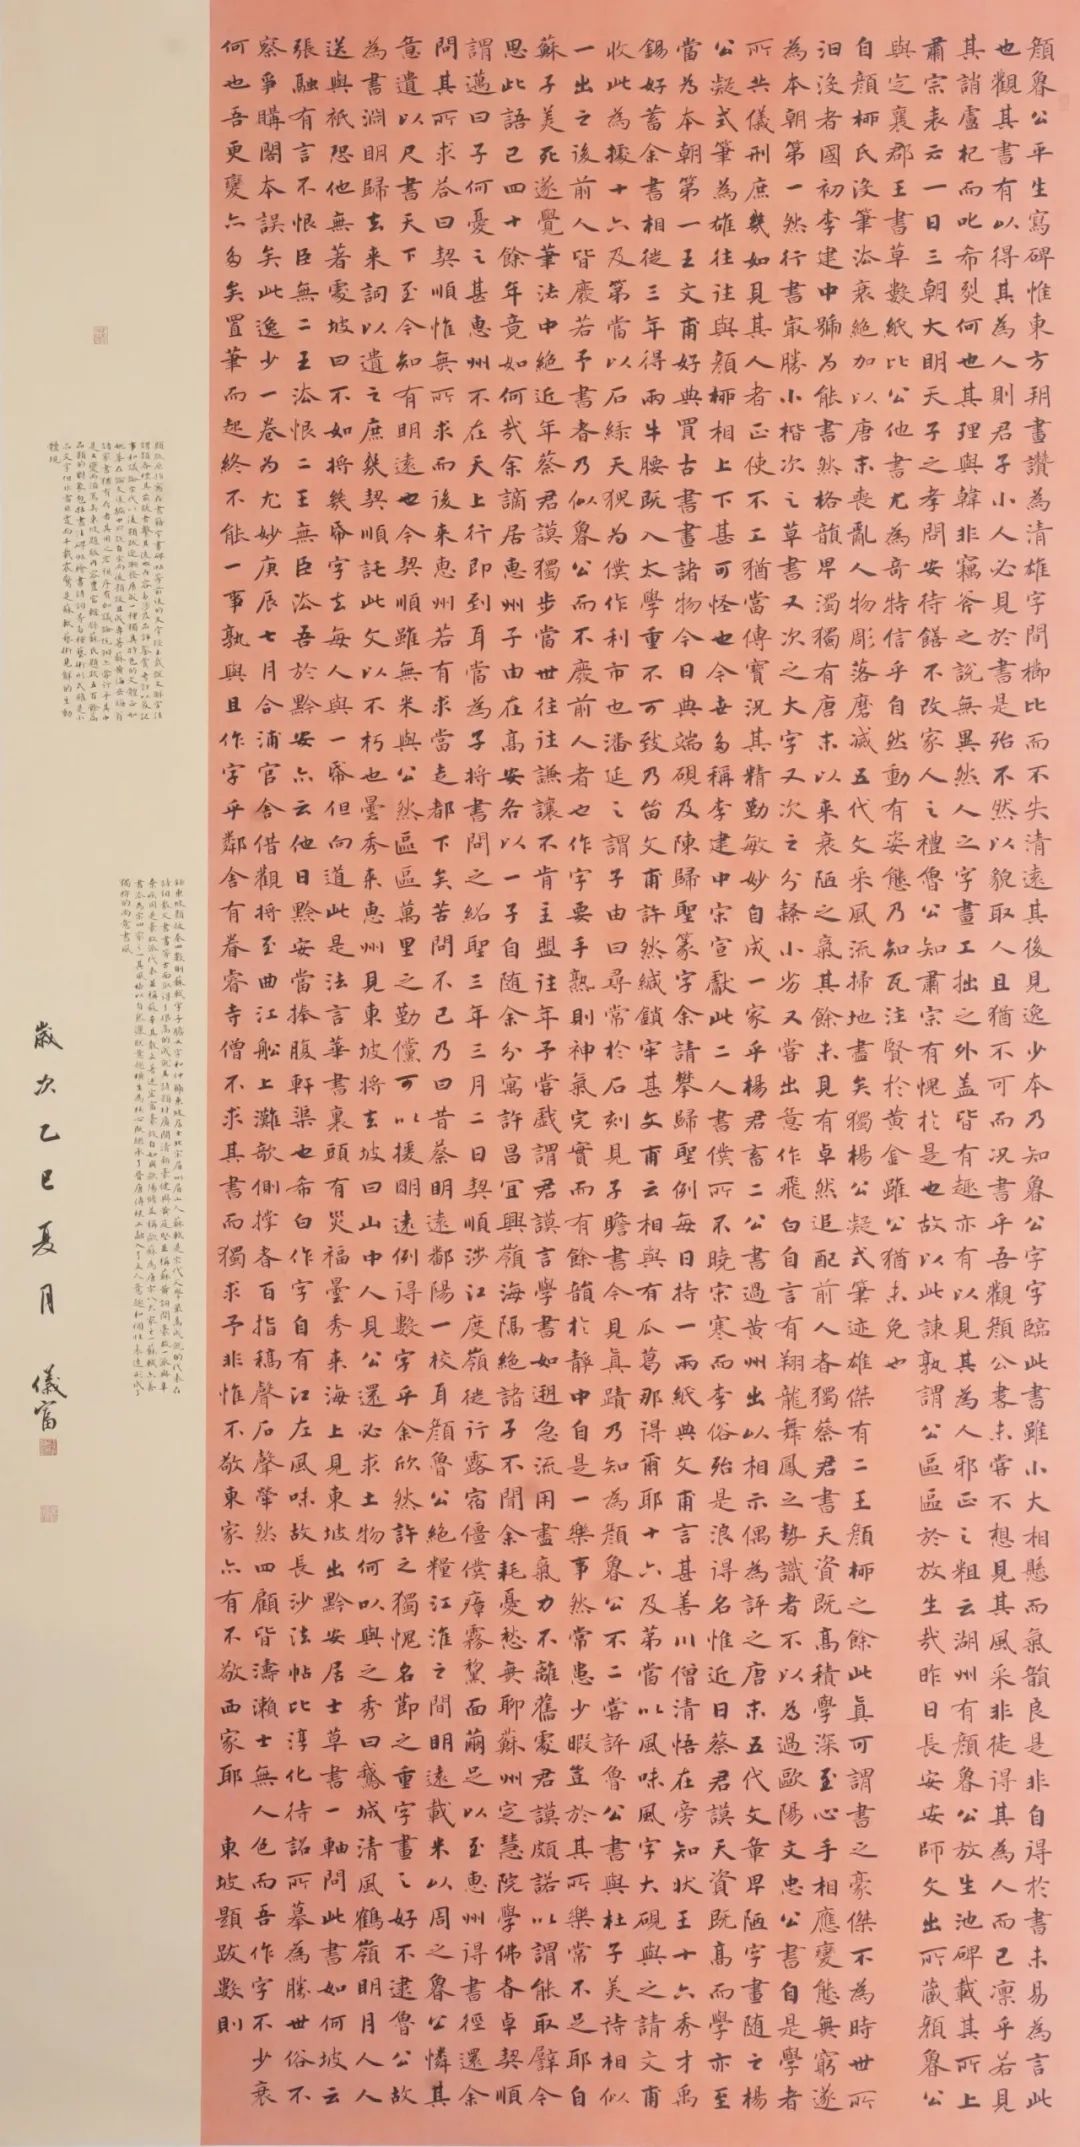 顏魯公平生寫碑惟東方朔畫讚為清雄字間櫛比而不失清遠其後見逸少本乃知魯公字字臨此書雖小大相懸而氣韻良是非自得於書未易為言此
也觀其書有以得其為人則君子小人必見於書是殆不然以貌取人且猶不可而況書乎吾觀顏公書未嘗不想見其風采非徒得其為人而已凜乎若見
其誚盧杞而叱希烈何也其理與韓非竊斧之說無異然人之字畫工拙之外蓋皆有趣亦有以見其為人邪正之粗云湖州有顏魯公放生池碑載其所上
肅宗表云一日三朝大明天子之孝問安待饍不改家人之禮魯公知肅宗有愧於是也故以此諫孰謂公區區於放生哉昨日長安安師文出所藏顏魯公
與定襄郡王書草數紙比公他書尤為奇特信乎自然動有姿態乃知瓦注賢於黃金雖公猶未免也
自顏柳氏沒筆法衰絕加以唐末喪亂人物彫落磨滅五代文采風流掃地盡矣獨楊公凝式筆迹雄傑有二王顏柳之餘此真可謂書之豪傑不為時世所
汩沒者國初李建中號為能書然格韻卑濁獨有唐末以來衰陋之氣其餘未見有卓然追配前人者獨蔡君書天資既高積學深至心手相應變態無窮遂
為本朝第一然行書最勝小楷次之草書又次之大字又次之分隸小劣又嘗出意作飛白自言有翔龍舞鳳之勢識者不以為過歐陽文忠公書自是學者
所共儀刑庶幾如見其人者正使不工猶當傳寶況其精勤敏妙自成一家乎楊君畜二公書過黃州出以相示偶為評之唐末五代文章卑陋字畫隨之楊
公凝式筆為雄往往與顏柳相上下甚可怪也今世多稱李建中宋宣獻此二人書僕所不曉宋寒而李俗殆是浪得名惟近日蔡君謨天資既高而學亦至
當為本朝第一王文甫好典買古書書畫諸物今日典端硯及陳歸聖篆字余請攀歸聖例每日持一兩紙典文甫言甚善川僧清悟在旁知狀王十六秀才禹
錫好蓄余書相從三年得兩牛腰既入太學重不可致乃笛文甫許然緘鎖牢甚文甫云相與有瓜葛那得爾耶十六及第當以風味風字大硯與之請文甫
收此為據十六及第當以石綠天猊為僕作利市也潘延之謂子由曰尋常於石刻見子瞻書今見真蹟乃知為顏魯公不二嘗評魯公書與杜子美詩相似
一出之後前人皆廢若予書者乃似魯公而不廢前人者也作字要手熟則神氣完實而有餘韻於靜中自是一樂事然常患少暇豈於其所樂常不足耶自
蘇子美死遂覺筆法中絕近年蔡君謨獨步當世往往謙讓不肯主盟往年予嘗戲謂君謨言學書如泝急流用盡氣力不離舊處君謨頗諾以謂能取譬今
思此語已四十餘年竟如何哉余謫居惠州子由在高安各以一子自隨余分寓許昌宜興嶺海隔絕諸子不聞余耗憂愁無聊蘇州定慧院學佛者卓契順
謂邁曰子何憂之甚惠州不在天上行即到耳當為子將書問之紹聖三年三月二日契順涉江度嶺徒行露宿僵僕瘴霧黧面繭足以至惠州得書徑還余
問其所求答曰契順惟無所求而後來惠州若有求當走都下矣苦問不已乃曰昔蔡明遠鄱陽一校耳顏魯公絕糧江淮之間明遠載米以周之魯公憐其
意遺以尺書天下至今知有明遠也今契順雖無米與公然區區萬里之勤儻可以援明遠例得數字乎余欣然許之獨愧名節之重字畫之好不逮魯公故
為書淵明歸去來詞以遺之庶幾契順託此文以不朽也曇秀來惠州見東坡將去坡曰山中人見公還必求土物何以與之秀曰鵝城清風鶴嶺明月人人
送與祇恐他無著處坡曰不如將幾番字去每人與一番但向道此是法言華書裏頭有災福曇秀來海上見東坡出黔安居士草書一軸問此書如何坡云
張融有言不恨臣無二王法恨二王無臣法吾於黔安亦云他日黔安當捧腹軒渠也希白作字自有江左風味故長沙法帖比淳化待詔所摹為勝世俗不
察爭購閣本誤矣此逸少一卷為尤妙庚辰七月合浦官舍借觀將至曲江船上灘欹側撐者百指稿聲石聲犖然四顧皆濤瀨士無人色而吾作字不少衰
何也吾更變亦多矣置筆而起終不能一事孰與且作字乎鄰舍有眷睿寺僧不求其書而獨求予非惟不敬東家亦有不敬西家耶 東坡題跋數則
歲次乙巳夏月 儀富